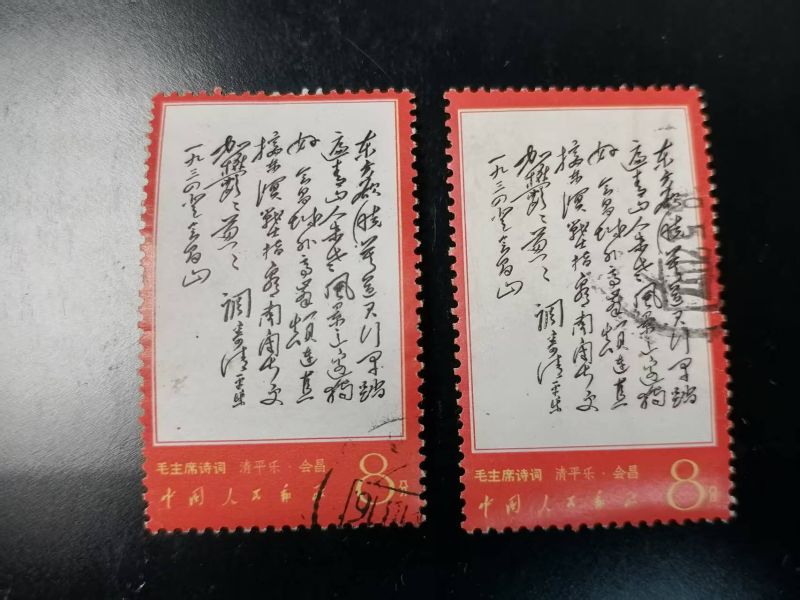 东方欲晓莫道君行早踏
遍青山人未老风景这边独
好 会昌城外高峰颠连直
接东溟战士指看南粤更
加鬱々葱々 调寄清平乐
一九三四登会昌山
毛主席诗词 清平乐·会昌
中国人民邮政
8分
东方欲晓莫道君行早踏
遍青山人未老风景这边独
好 会昌城外高峰颠连直
接东溟战士指看南粤更
加鬱々葱々 调寄清平乐
一九三四登会昌山
毛主席诗词 清平乐·会昌
中国人民邮政
8分